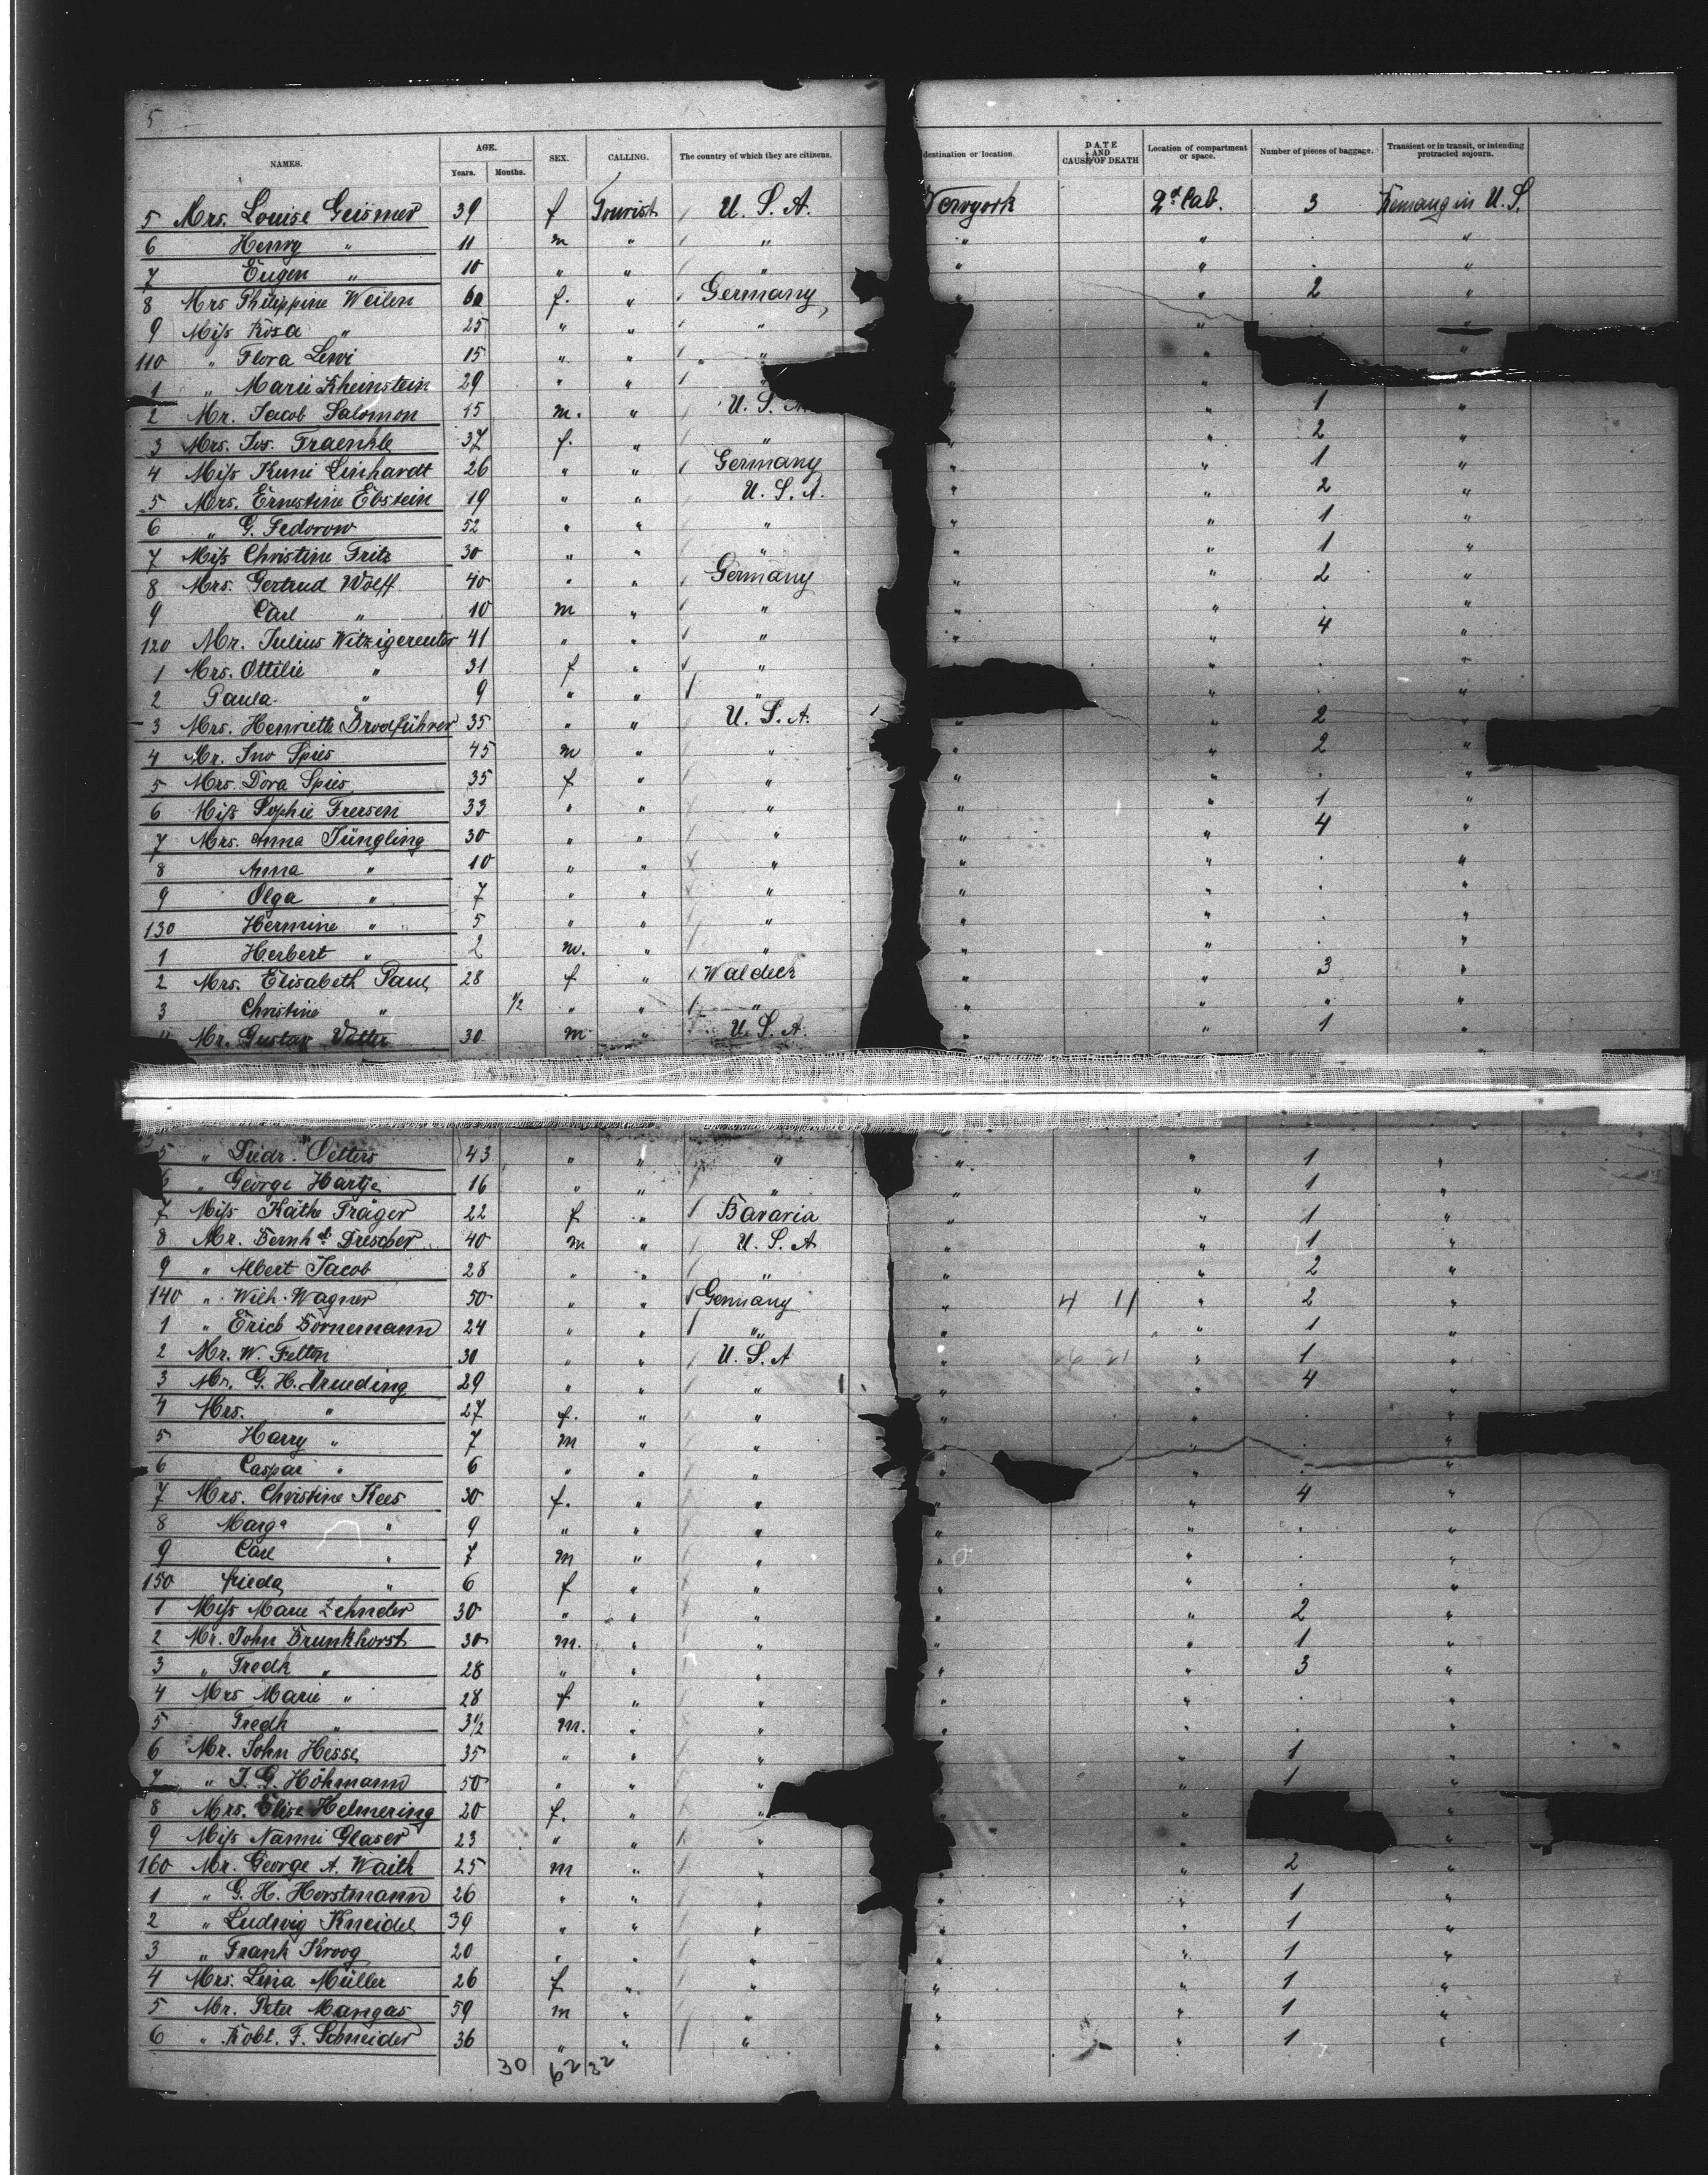 5
NAMES. AGE. Years. Months. SEX. CALLING. The country of which they are citizens. destination or location. DATE AND CAUSE OF DEATH Location of compartment or space. Number of pieces of baggage. Transient or in transit, or intending protracted sojourn.
5 Mrs. Louise Geismer 39 f Tourist U. S. A. Newyork 2d Cab. 3 in U. S.
6 Henry " 11 m " " " " . "
7 Eugen " 10 " " " " " . "
8 Mrs Philippine Weilen 60 f. " Germany " " 2 "
9 Miss Rosa " 25 " " " " . "
110 " Flora Lewi 15 " " " " " "
1 " Marie Rheinstein 29 " " " "
2 Mr. Jacob Salomon 15 m. " U. S. A. " 1 "
3 Mrs. Jos. Fraenkle 37 f. " " " " 2 "
4 Miss Kuni Linhardt 26 " " Germany " " 1 "
5 Mrs. Ernestine Ebstein 19 " " U. S. A. " " 2 "
6 " G. Fedorow 52 " " " " " 1 "
7 Miss Christine Fritz 30 " " " " " 1 "
8 Mrs. Gertrud Wolff 40 " " Germany " " 2 "
9 Carl " 10 m " " " " . "
120 Mr. Julius Witzigereuter 41 " " " " " 4 "
1 Mrs. Ottilie " 31 f " " " . "
2 Paula " 9 " " " " . "
3 Mrs. Henriette Brodführer 35 " " U. S. A. " " 2 "
4 Mr. Jno Spies 45 m " " " " 2 "
5 Mrs. Dora Spies 35 f " " " " . "
6 Miss Sophie Frersen 33 " " " " " 1 "
7 Mrs. Anna Jüngling 30 " " " " " 4 "
8 Anna " 10 " " " " " . "
9 Olga " 7 " " " " " . "
130 Hermine " 5 " " " " " . "
1 Herbert " 2 m. " " " " . "
2 Mrs. Elisabeth Paul 28 f " Waldeck " " 3 "
3 Christine " 1/2 " " " " " " "
4 Mr. Gustav Vetter 30 m " U. S. A. " " 1 "
5 " Diedr. Oetters 43 " " " " " 1 "
6 " George Hartje 16 " " " " " 1 "
7 Miss Käthe Träger 22 f " Bavaria " " 1 "
8 Mr. Bernhdt Drescher 40 m " U. S. A " " 1 "
9 " Albert Jacob 28 " " " " " 2 "
140 " Wilh. Wagner 50 " " Germany " 4 11 " 2 "
1 " Erich Bornemann 24 " " " " " 1 "
2 Mr. W. Felton 30 " " U. S. A " 26 21 " 1 "
3 Mr. G. H. Drueding 29 " " " " " 4 "
4 Mrs. " 27 f. " " " " . "
5 Harry " 7 m " " " " . "
6 Caspar " 6 " " " " " . "
7 Mrs. Christine Kees 30 f. " " " 4 "
8 Marga " 9 " " " " " . "
9 Carl " 7 m " " " " . "
150 Frieda " 6 f " " " " . "
1 Miss Marie Zehnder 30 " " " " " 2 "
2 Mr. John Brunkhorst 30 m. " " " " 1 "
3 " Fredk " 28 " " " " " 3 "
4 Mrs Marie " 28 f " " " " . "
5 Fredk " 3 1/2 m. " " " " . "
6 Mr. John Hesse 35 " " " " 1 "
7 " J. G. Höhmann 50 " " " " " 1 "
8 Mrs. Elise Helmering 20 f. " " " " "
9 Miss Nanni Glaser 23 " " " " "
160 Mr. George A. Waith 25 m " " " " 2 "
1 " G. H. Horstmann 26 " " " " " 1 "
2 " Ludwig Kneidel 39 " " " " " 1 "
3 " Frank Kroog 20 " " " " " 1 "
4 Mrs. Lina Müller 26 f " " " " 1 "
5 Mr. Peter Mangas 59 m " " " " 1 "
6 " Robt. F. Schneider 36 " " " " " 1 "
30 62 32